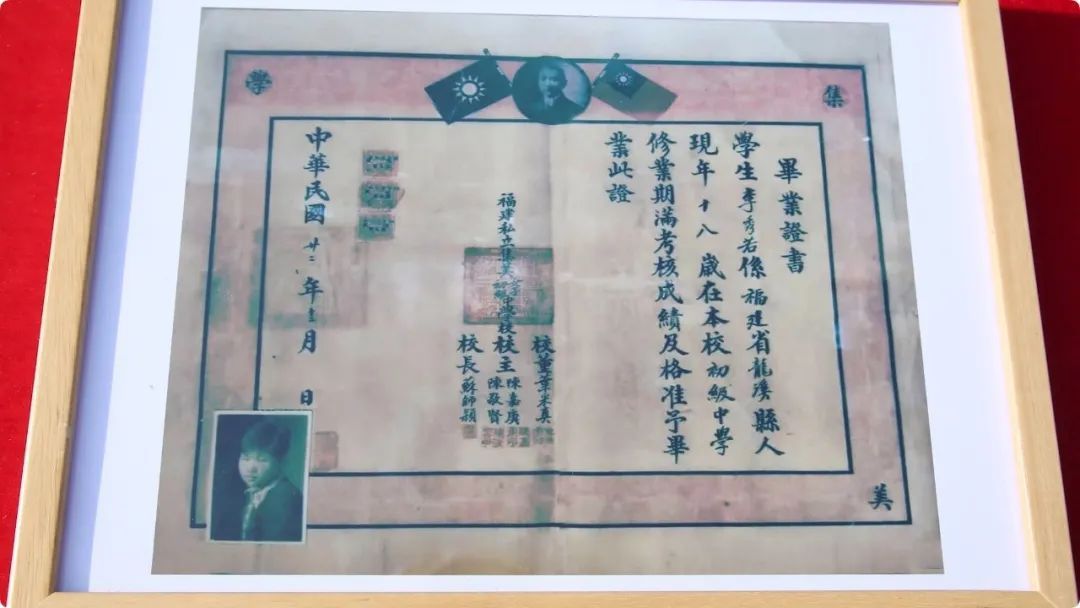 畢業證書
學生李秀若係福建省龍溪縣人
現年十八歲在本校初級中學
修業期滿考核成績及格准予畢
業此證
福建私立集美初級中學校
校董葉采真
校主陳嘉庚
陳敬賢
校長蘇師穎
中華民國廿二年 月 日
集
美
學